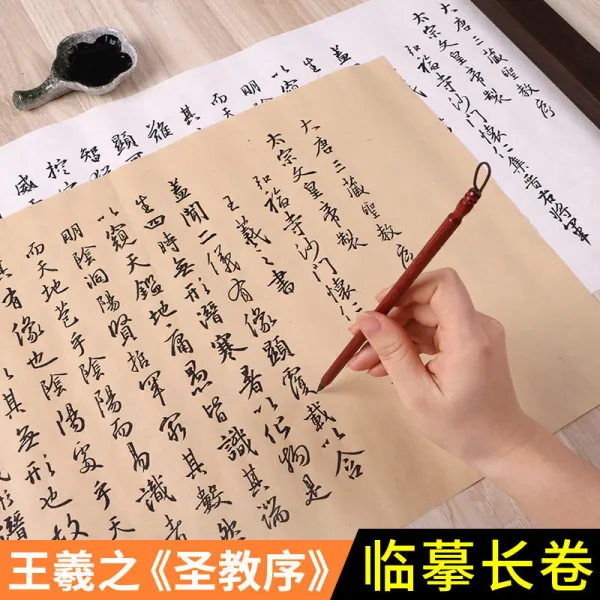 大唐三藏聖教序
太宗文皇帝製
弘福寺沙門懷仁集晉右將軍
蓋
生
以窺
明
而天
其
難
顯
智
控
威
大唐三藏聖教序
太宗文皇帝製
弘福寺沙門懷仁
王羲之書
蓋聞二儀有像顯覆載以含
生四時無形潛寒暑以化物是
以窺天鑑地庸愚皆識其端
明陰洞陽賢哲罕窮其數然
而天地苞乎陰陽而易識者
其有像也陰陽處乎天
以其無形也故
形潛
王羲之《圣教序》
临摹长卷